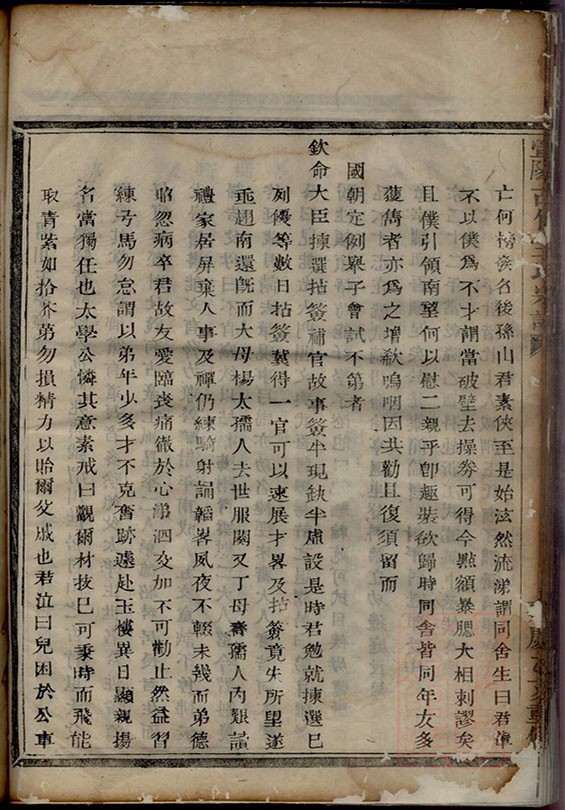 亡何榜發名後孫山君素俠至是始泫然流涕謂同舍生曰君輩
不以僕爲不才謂當破壁去操券可得今點額暴腮大相刺謬矣
且僕引領南望何以慰二親乎卽趣裝欲歸時同舍皆同年友多
獲雋者亦爲之增欷嗚咽因共勸且復須留而
國朝定例舉子會試不第者
欽命大臣揀選拈籤補官故事籤半現缺半虛設是時君勉就揀選巳
列優等數日拈籤冀得一官可以速展才畧及拈籤竟失所望遂
亟趨南還旣而大母楊太孺人去世服闋又丁母喬孺人內艱讀
禮家居屏棄人事及禫仍練騎射誦韜畧夙夜不輟未幾而弟德
昭忽病卒君故友愛臨喪痛徹於心涕泗交加不可勸止然益習
練弓馬勿怠謂以弟年少多才不克奮跡遽赴玉樓異日顯親揚
名當獨任也太學公憐其意素戒曰觀爾材技巳可乘時而飛能
取青紫如拾芥第勿損精力以貽爾父戚也君泣曰兒困於公車